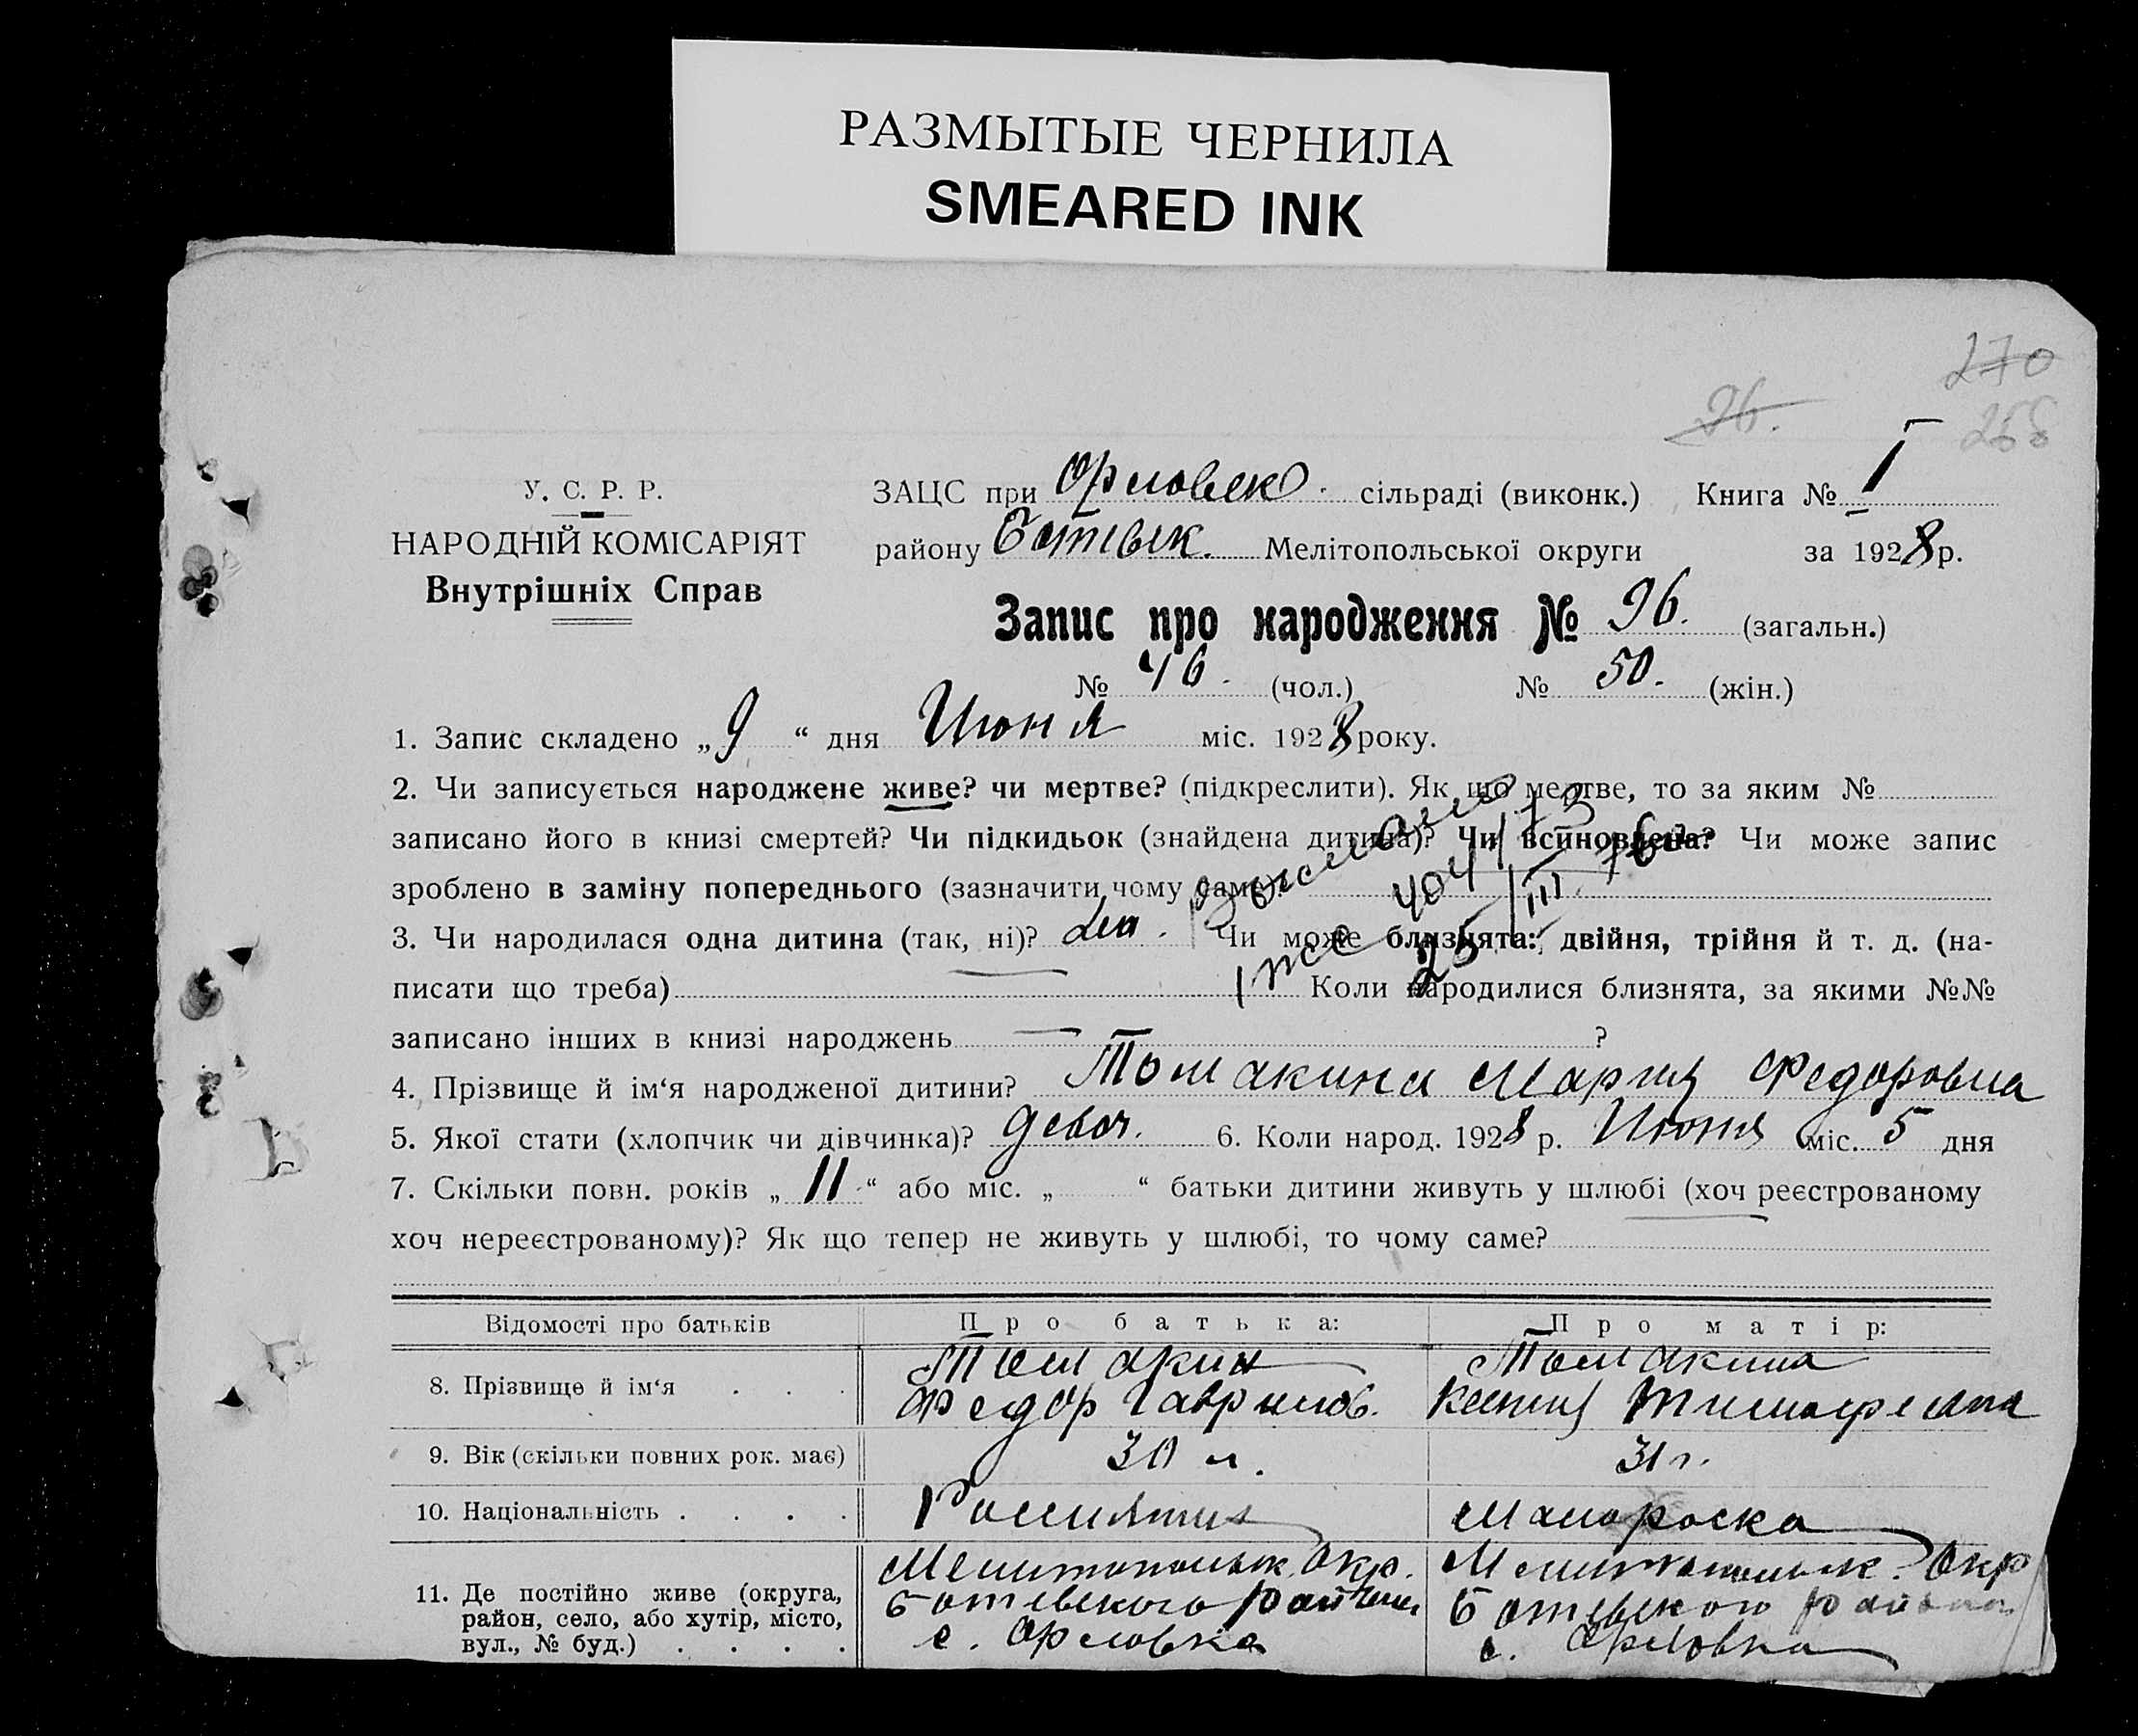 РАЗМЫТЫЕ ЧЕРНИЛА
SMEARED INK
270
96.
258
У. С. Р. Р.
НАРОДНІЙ КОМІСАРІЯТ
Внутрішніх Справ
ЗАЦС при Орловск. сільраді (виконк.) Книга № I
району Ботевск. Мелітопольської округи за 1928 р.
Запис про народження № 96. (загальн.)
№ 46. (чол.) № 50. (жін.)
1. Запис складено „9“ дня Июня міс. 1928 року.
2. Чи записується народжене живе? чи мертве? (підкреслити). Як що мертве, то за яким №
записано його в книзі смертей? Чи підкидьок (знайдена дитина)? Чи всиновлена? Чи може запис
зроблено в заміну попереднього (зазначити чому саме)?
3. Чи народилася одна дитина (так, ні)? Чи може близнята: двійня, трійня й т. д. (на-
писати що треба) Коли народилися близнята, за якими №№
записано інших в книзі народжень ?
4. Прізвище й ім‘я народженої дитини? Томакина Мария Федоровна
5. Якої стати (хлопчик чи дівчинка)? девоч. 6. Коли народ. 1928 р. Июня міс. 5 дня
7. Скільки повн. років „11“ або міс. „ “ батьки дитини живуть у шлюбі (хоч реєстрованому
хоч нереєстрованому)? Як що тепер не живуть у шлюбі, то чому саме?
Відомості про батьків Про батька: Про матір:
8. Прізвище й ім‘я . . . Томакин Федор Гаврилов. Томакина Ксения Тимофеевна
9. Вік (скільки повних рок. має) 30 л. 31 г.
10. Національність . . . . Россиянин Малороска
11. Де постійно живе (округа, Мелитопольск. Окр. Мелитопольск. Окр
район, село, або хутір, місто, Ботевского района Ботевского района
вул., № буд.) . . . . с. Орловка с. Орловка